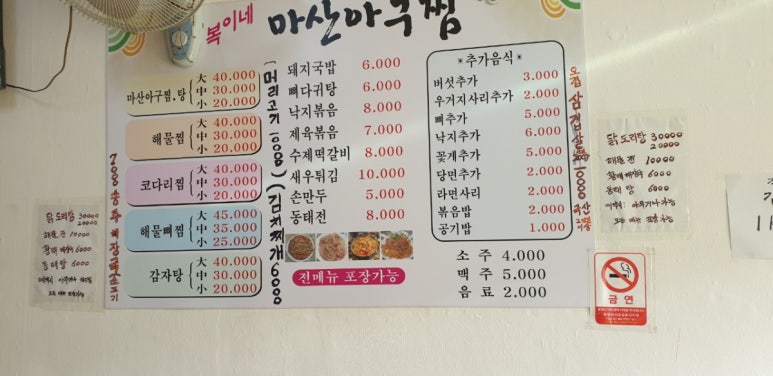 복이네 마산아구찜
마산아구찜.탕
大 40.000
中 30.000
小 20.000
해물찜
大 40.000
中 30.000
小 20.000
코다리찜
大 40.000
中 30.000
小 20.000
해물뼈찜
大 45.000
中 35.000
小 25.000
감자탕
大 40.000
中 30.000
小 20.000
머리고기
김치찌개 6000
돼지국밥 6.000
뼈다귀탕 6.000
낙지볶음 8.000
제육볶음 7.000
수제떡갈비 8.000
새우튀김 10.000
손만두 5.000
동태전 8.000
전메뉴 포장가능
추가음식
버섯추가 3.000
우거지사리추가 2.000
뼈추가 5.000
낙지추가 6.000
꽃게추가 5.000
당면추가 2.000
라면사리 2.000
볶음밥 2.000
공기밥 1.000
소주 4.000
맥주 5.000
음료 2.000
오겹 삼겹살
닭도리탕 30000
20000
10000
6000
동태탕 6000
닭도리탕 30000
20000
6000
동태탕 6000
금연